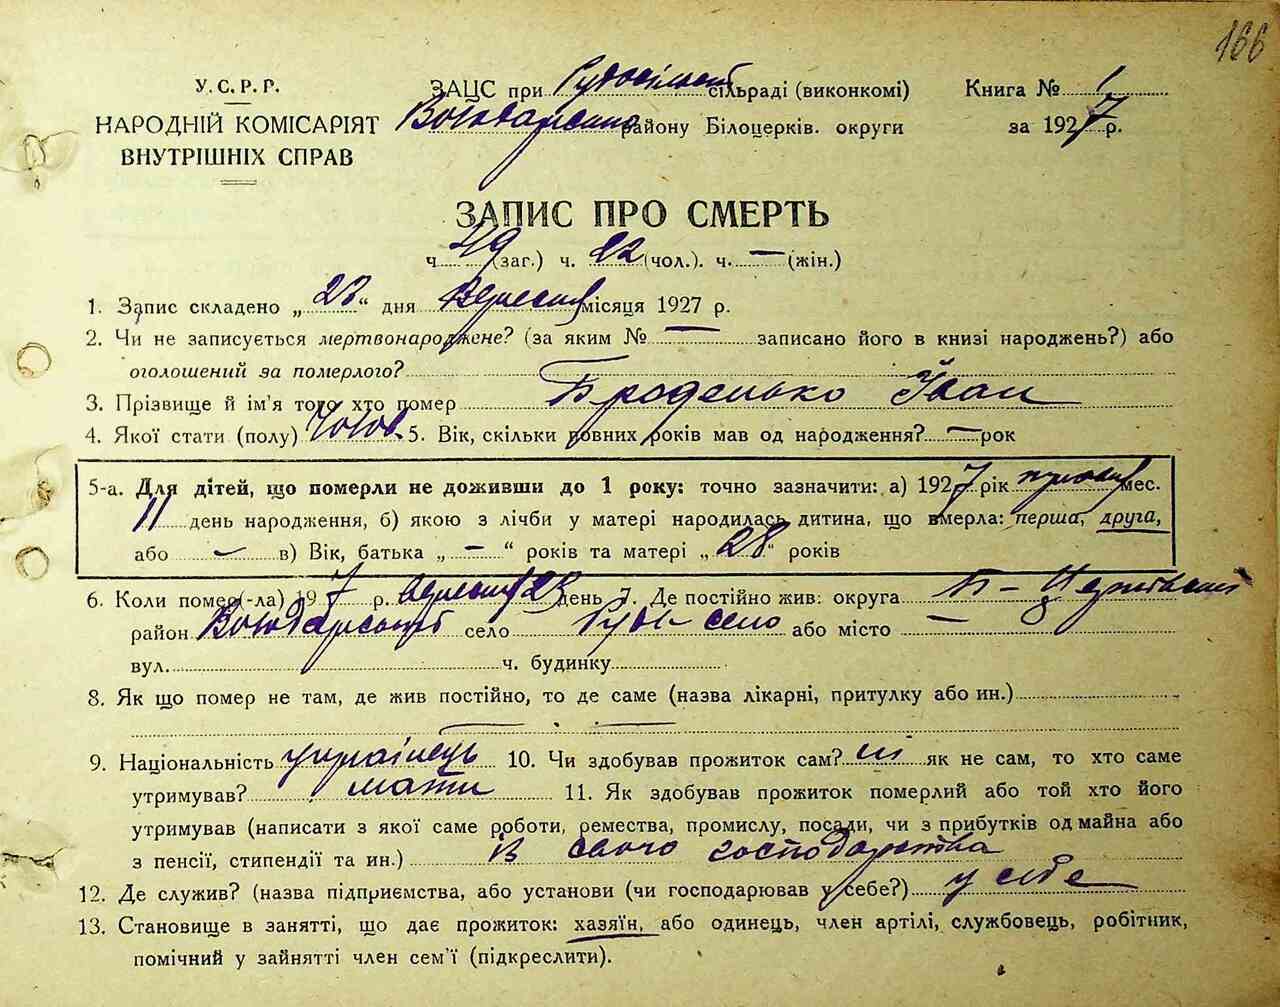 166
У.С.Р.Р.
НАРОДНІЙ КОМІСАРІЯТ
ВНУТРІШНІХ СПРАВ
ЗАЦС при Рудосільській сільраді (виконкомі)
Володарського району Білоцерків. округи
Книга № 1
за 1927 р.
ЗАПИС ПРО СМЕРТЬ
ч. 49 (заг.) ч. 22 (чол.). ч. — (жін.)
1. Запис складено „23“ дня Вересня місяця 1927 р.
2. Чи не записується мертвонароджене? (за яким № — записано його в книзі народжень?) або
оголошений за померлого?
3. Прізвище й ім'я того хто помер Броденько Іван
4. Якої стати (полу) Чолов. 5. Вік, скільки повних років мав од народження? — рок
5-а. Для дітей, що померли не доживши до 1 року: точно зазначити: а) 1927 рік мес.
11 день народження, б) якою з лічби у матері народилась дитина, що вмерла: перша, друга,
або — в) Вік, батька „ — “ років та матері „ 28 “ років
6. Коли помер(-ла) 1927 р. вересня 23 день 7. Де постійно жив: округа Б-Церківській
район Володарський село Руде-село або місто —
вул. ч. будинку
8. Як що помер не там, де жив постійно, то де саме (назва лікарні, притулку або ин.)
9. Національність українець 10. Чи здобував прожиток сам? ні як не сам, то хто саме
утримував? мати 11. Як здобував прожиток померлий або той хто його
утримував (написати з якої саме роботи, ремества, промислу, посади, чи з прибутків од майна або
з пенсії, стипендії та ин.) із свого господарства
12. Де служив? (назва підприємства, або установи (чи господарював у себе?) у себе
13. Становище в занятті, що дає прожиток: хазяїн, або одинець, член артілі, службовець, робітник,
помічний у зайнятті член сем'ї (підкреслити).